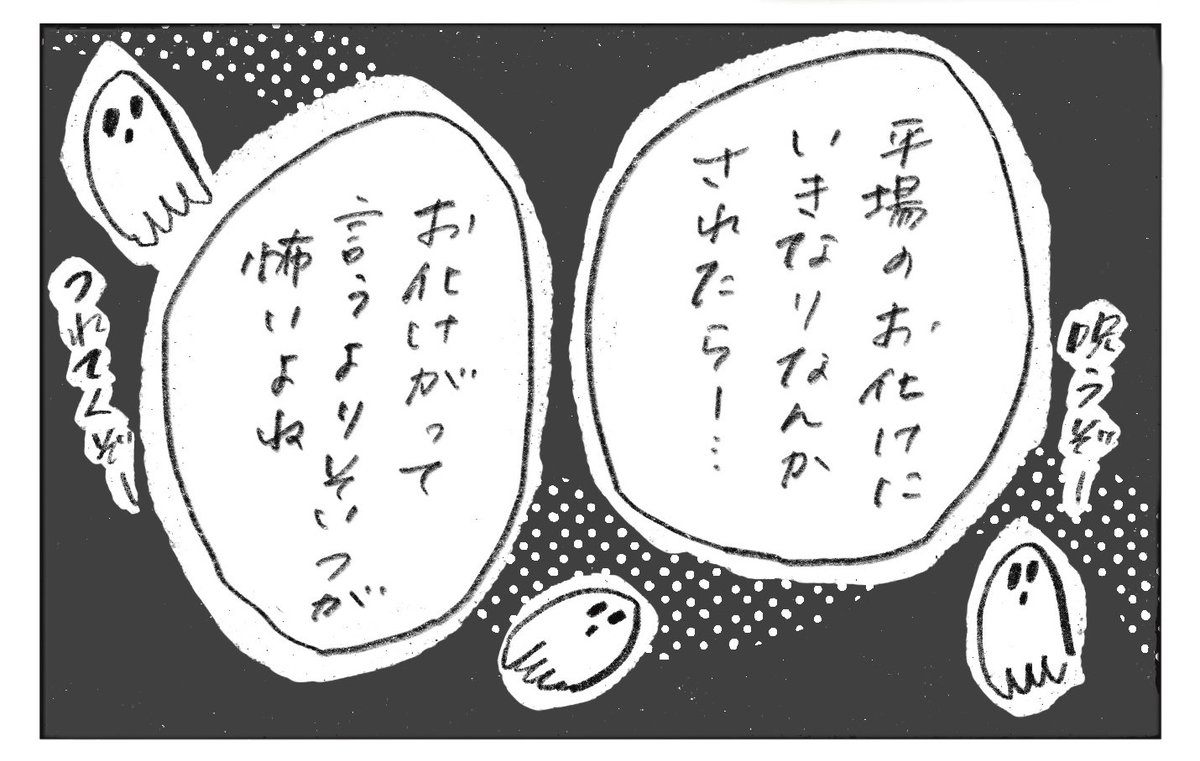 平場のお化けに
いきなりなんか
されたらー…
呪うぞー
お化けがって
言うよりそいつが
怖いよね
つれてくぞー